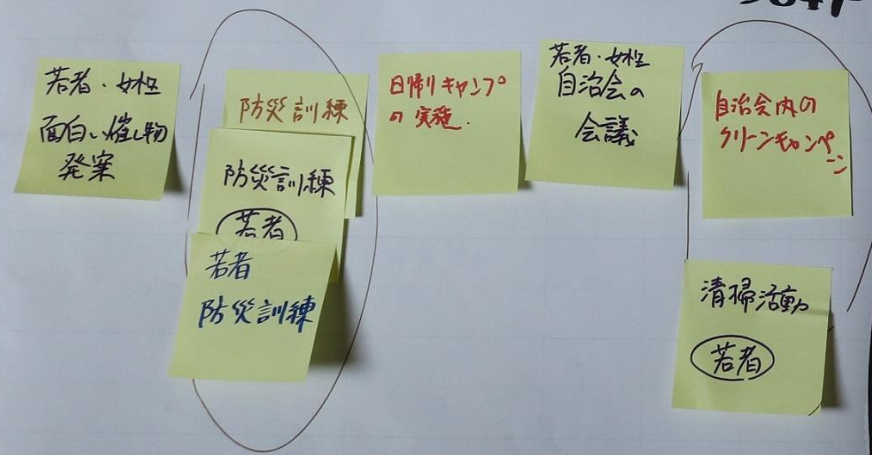 若者・女性
面白い催し物
発案
防災訓練
防災訓練
若者
若者
防災訓練
日帰りキャンプ
の実施.
若者・女性
自治会の
会議
自治会内の
クリーンキャンペ
ーン
清掃活動
若者